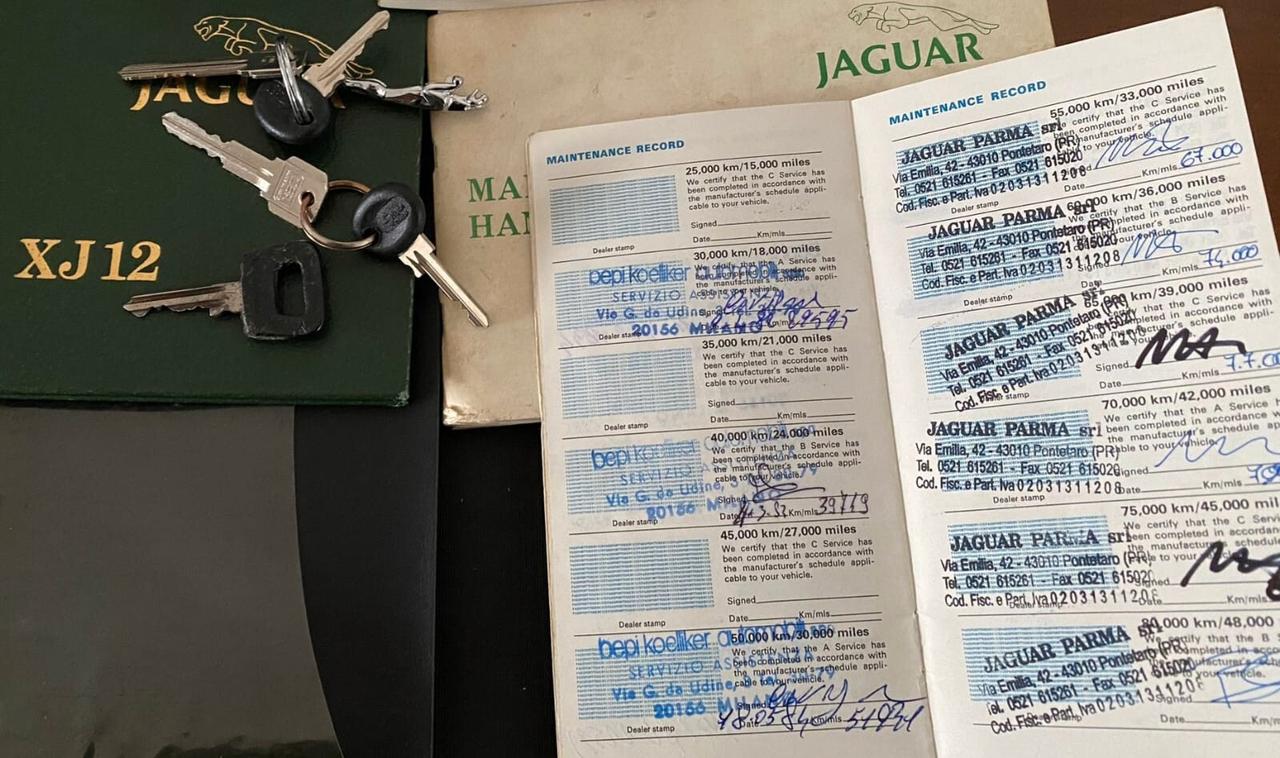 JAGUAR
XJ12
JAGUAR
MAINTENANCE RECORD
25,000 km/15,000 miles
We certify that the C Service has
been completed in accordance with
the manufacturer's schedule appli-
cable to your vehicle.
Signed
Date Km/mls
Dealer stamp
30,000 km/18,000 miles
We certify that the A Service has
bepi koelliker automobili
SERVIZIO
Via G. da Udine,
20156 MILANO
Dealer stamp
35,000 km/21,000 miles
We certify that the C Service has
been completed in accordance with
the manufacturer's schedule appli-
cable to your vehicle.
Signed
Date Km/mls
Dealer stamp
40,000 km/24,000 miles
We certify that the B Service has
been completed in accordance with
the manufacturer's schedule appli-
cable to your vehicle.
bepi koelliker automobili
SERVIZIO
Via G. da Udine,
20156
Signed
Date Km/mls 39719
Dealer stamp
45,000 km/27,000 miles
We certify that the C Service has
been completed in accordance with
the manufacturer's schedule appli-
cable to your vehicle.
Signed
Date Km/mls
Dealer stamp
50,000 km/30,000 miles
We certify that the A Service has
been completed in accordance with
the manufacturer's schedule appli-
cable to your vehicle.
bepi koelliker automobili
SERVIZIO
Via G. da Udine,
20156
Signed
Date Km/mls
Dealer stamp
MAINTENANCE RECORD
55,000 km/33,000 miles
We certify that the C Service has
been completed in accordance with
manufacturer's schedule appli-
to your vehicle.
JAGUAR PARMA srl
Via Emilia, 42 - 43010 Pontetaro (PR)
Tel. 0521 615261 - Fax 0521 615020
Cod. Fisc. e Part. Iva 02031311208
Date Km/mls 67.000
Dealer stamp
60,000 km/36,000 miles
We certify that the B Service has
been completed in accordance with
JAGUAR PARMA srl
Via Emilia, 42 - 43010 Pontetaro (PR)
Tel. 0521 615261 - Fax 0521 615020
Cod. Fisc. e Part. Iva 02031311208
Signed
Date Km/mls 74.000
Dealer stamp
65,000 km/39,000 miles
We certify that the C Service has
JAGUAR PARMA srl
Via Emilia, 42 - 43010 Pontetaro (PR)
Tel. 0521 615261 - Fax 0521 615020
Cod. Fisc. e Part. Iva
Signed
Date Km/mls
70,000 km/42,000 miles
We certify that the A Service
been completed in accordance
the manufacturer's schedule
JAGUAR PARMA srl
Via Emilia, 42 - 43010 Pontetaro (PR)
Tel. 0521 615261 - Fax 0521 615020
Cod. Fisc. e Part. Iva 02031311208
Signed
Date Km/mls
Dealer stamp
75,000 km/45,000
We certify that the C
been completed in
JAGUAR PARMA srl
Via Emilia, 42 - 43010 Pontetaro (PR)
Tel. 0521 615261 - Fax 0521 615020
Cod. Fisc. e Part. Iva
Signed
Date Km/mls
Dealer stamp
80,000 km/48,000
JAGUAR PARMA srl
Via Emilia, 42 - 43010 Pontetaro (PR)
Tel. 0521 615261 - Fax 0521 615020
Cod. Fisc. e Part. Iva
Signed
Date Km/mls